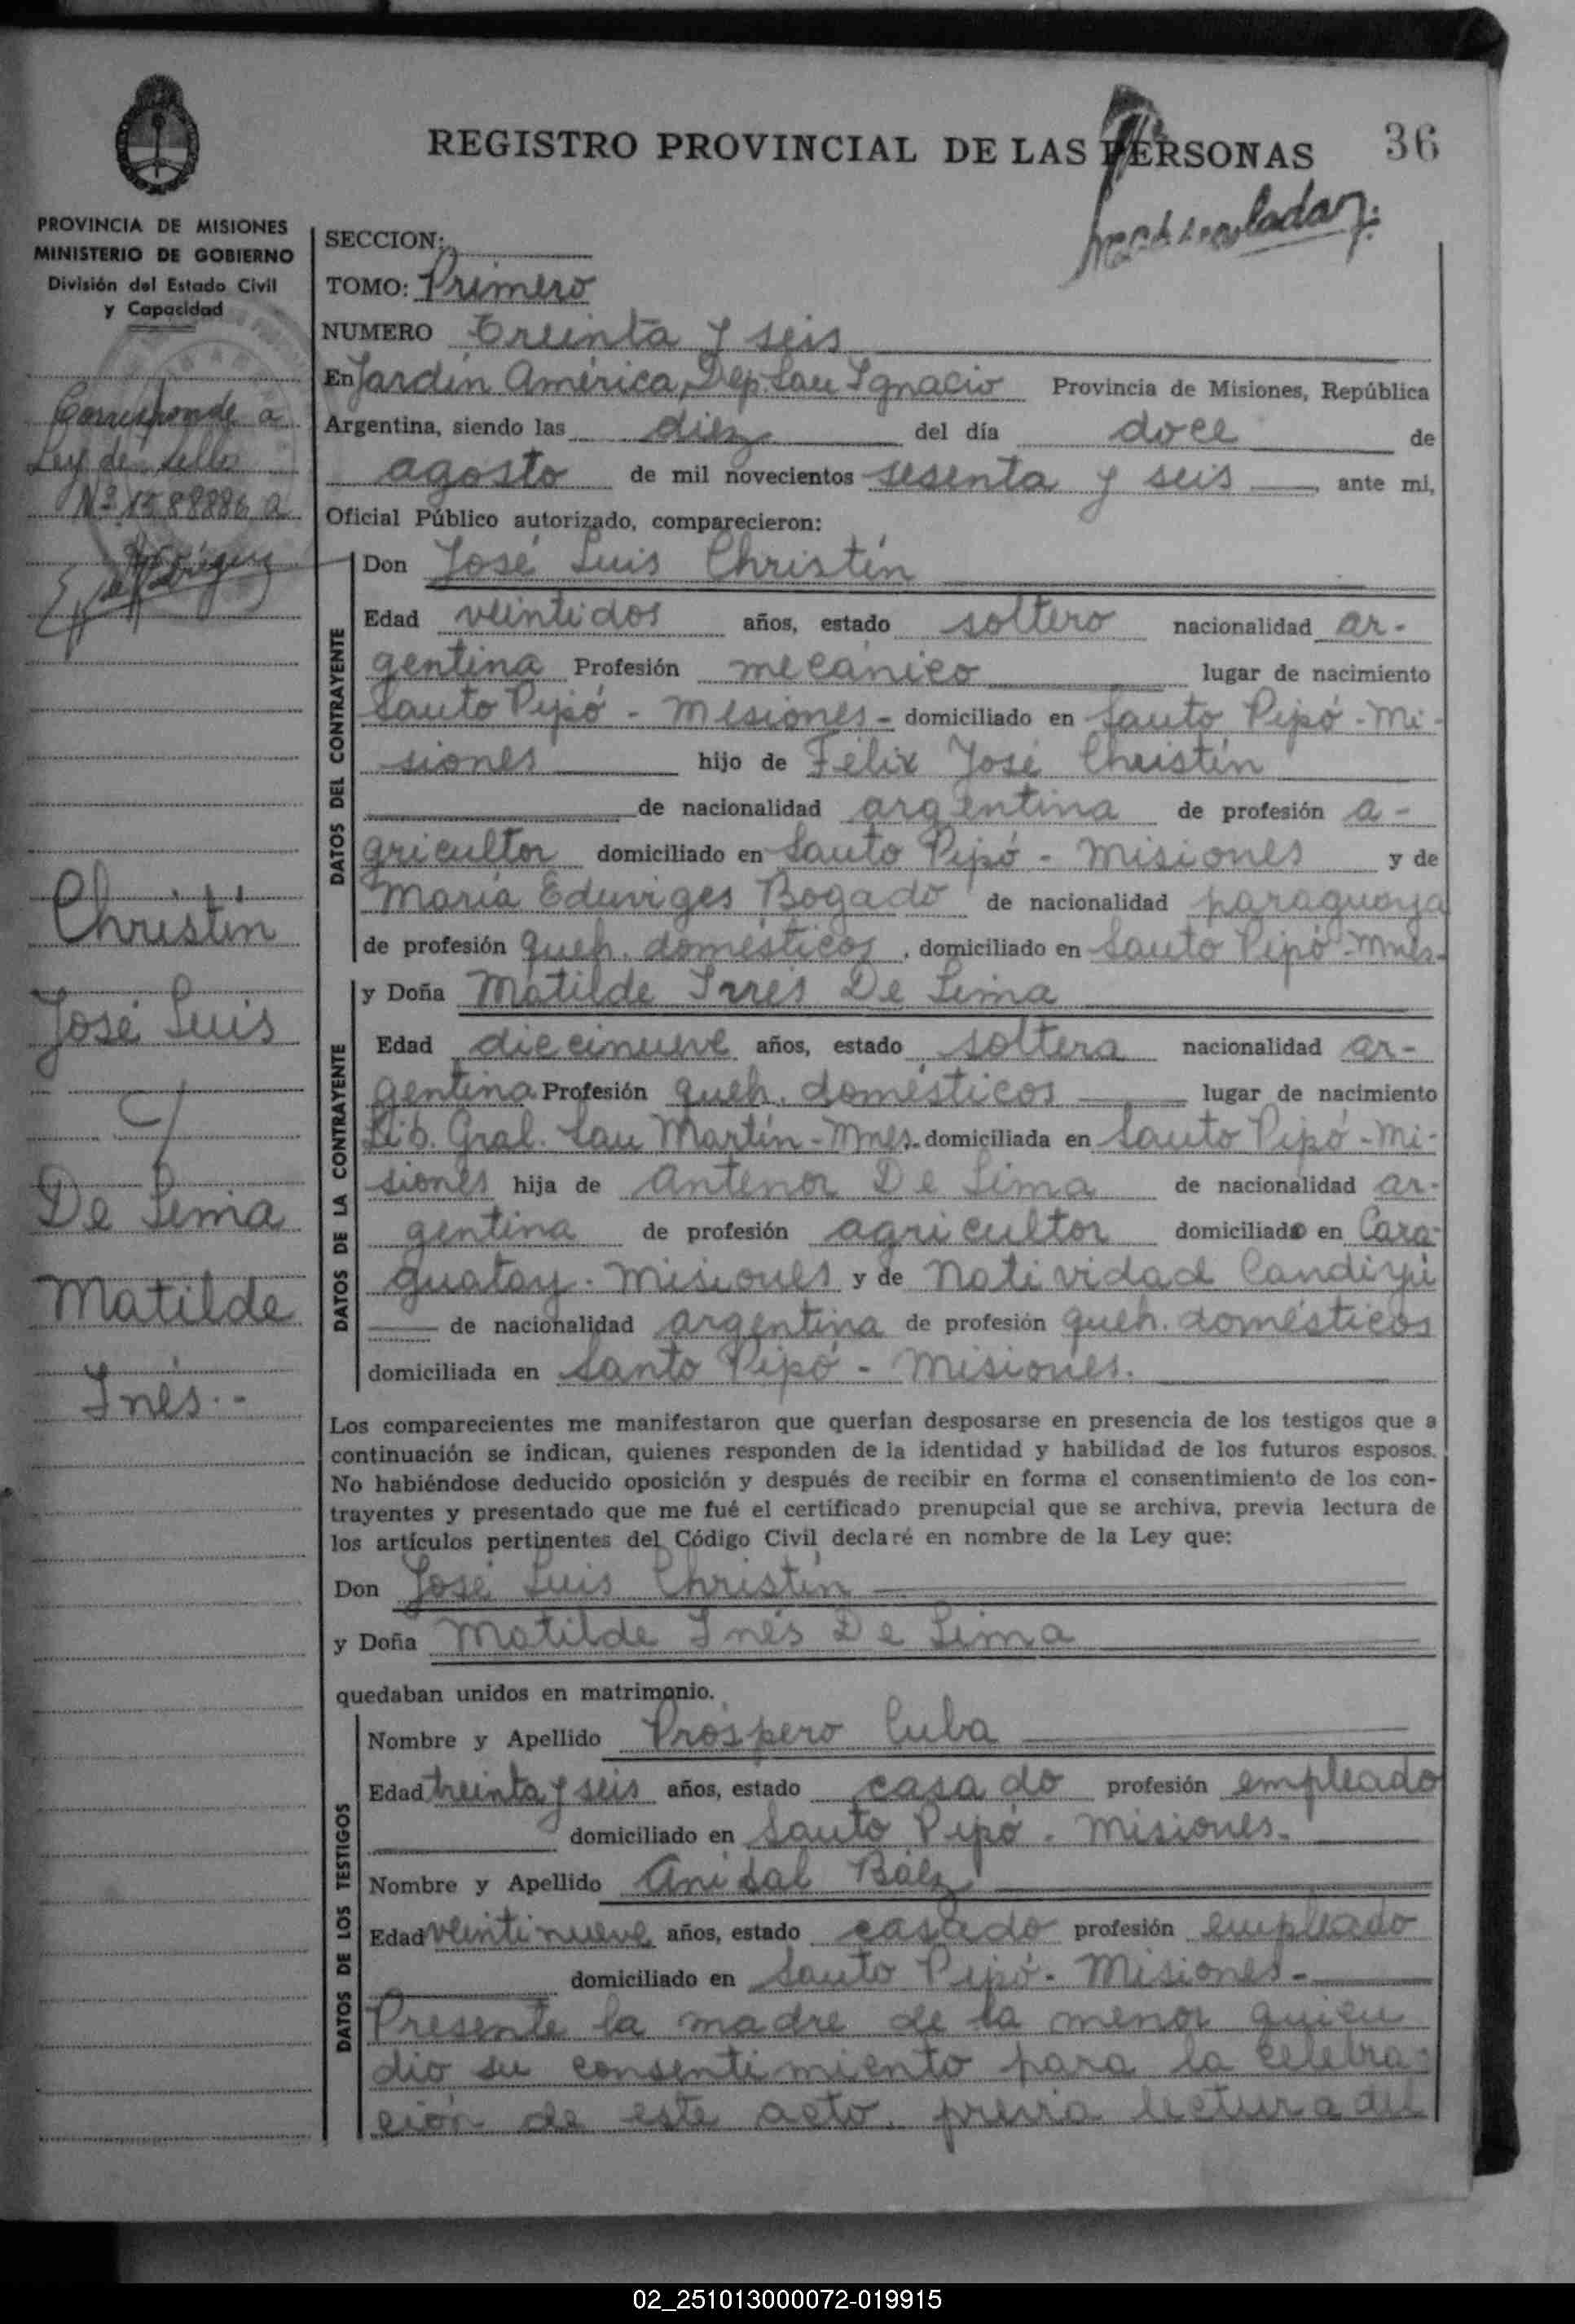 REGISTRO PROVINCIAL DE LAS PERSONAS 36
PROVINCIA DE MISIONES
MINISTERIO DE GOBIERNO
División del Estado Civil
y Capacidad
Corresponde a
Ley de sellos
Nº 1588886 a
Christín
José Luis
y
De Lima
Matilde
Inés.-
SECCION:
TOMO: Primero
NUMERO Treinta y seis
En Jardín América, Dep. San Ignacio Provincia de Misiones, República
Argentina, siendo las diez del día doce de
agosto de mil novecientos sesenta y seis, ante mi,
Oficial Público autorizado, comparecieron:
DATOS DEL CONTRAYENTE
Don José Luis Christín
Edad veintidos años, estado soltero nacionalidad ar-
gentina Profesión mecánico lugar de nacimiento
Santo Pipó - Misiones - domiciliado en Santo Pipó - Mi-
siones hijo de Félix José Christín
de nacionalidad argentina de profesión a-
gricultor domiciliado en Santo Pipó - Misiones y de
María Eduviges Bogado de nacionalidad paraguaya
de profesión queh. domésticos, domiciliado en Santo Pipó - Mnes-
DATOS DE LA CONTRAYENTE
y Doña Matilde Inés De Lima
Edad diecinueve años, estado soltera nacionalidad ar-
gentina Profesión queh. domésticos lugar de nacimiento
Lib. Gral. San Martín - Mnes. domiciliada en Santo Pipó - Mi-
siones hija de Antenor De Lima de nacionalidad ar-
gentina de profesión agricultor domiciliado en Cara-
guatay - Misiones y de Natividad Candiyú
de nacionalidad argentina de profesión queh. domésticos
domiciliada en Santo Pipó - Misiones.
Los comparecientes me manifestaron que querían desposarse en presencia de los testigos que a
continuación se indican, quienes responden de la identidad y habilidad de los futuros esposos.
No habiéndose deducido oposición y después de recibir en forma el consentimiento de los con-
trayentes y presentado que me fué el certificado prenupcial que se archiva, previa lectura de
los artículos pertinentes del Código Civil declaré en nombre de la Ley que:
Don José Luis Christín
y Doña Matilde Inés De Lima
quedaban unidos en matrimonio.
DATOS DE LOS TESTIGOS
Nombre y Apellido Próspero Cuba
Edad treinta y seis años, estado casado profesión empleado
domiciliado en Santo Pipó - Misiones.
Nombre y Apellido Anibal Báez
Edad veintinueve años, estado casado profesión empleado
domiciliado en Santo Pipó - Misiones -
Presente la madre de la menor quien
dio su consentimiento para la celebra-
ción de este acto, previa lectura del
02_251013000072-019915